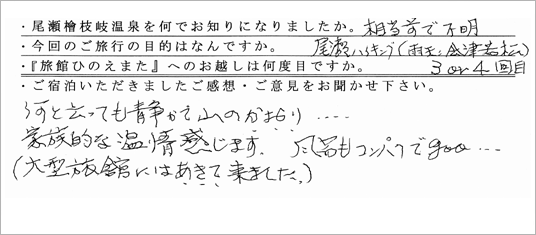 ・尾瀬檜枝岐温泉を何でお知りになりましたか。相当前で不明
・今回のご旅行の目的はなんですか。尾瀬ハイキング(雨天:会津若松)
・『旅館ひのえまた』へのお越しは何度目ですか。3 or 4 回目
・ご宿泊いただきましたご感想・ご意見をお聞かせ下さい。
何と云っても静かで山のかおり ‥‥
家族的な温情感じます。 風呂もコンパクで goo …
(大型旅館にはあきて来ました。)